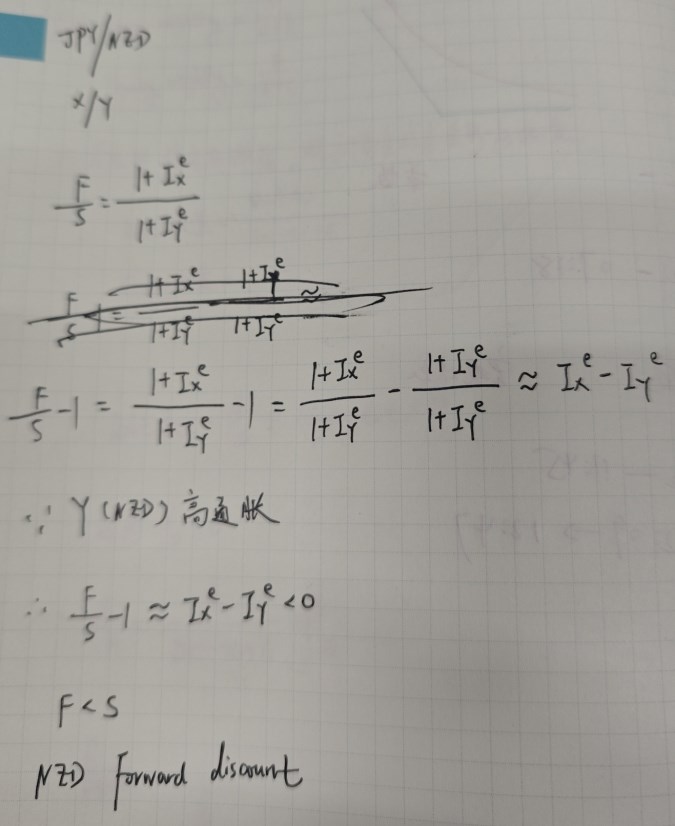 JPY/NZD
X/Y
F/S = (1+Ix^e)/(1+Iy^e)
F/S = (1+Ix^e)/(1+Iy^e) (1+Iy^e)/(1+Iy^e) ≈
F/S -1 = (1+Ix^e)/(1+Iy^e) -1 = (1+Ix^e)/(1+Iy^e) - (1+Iy^e)/(1+Iy^e) ≈ Ix^e - Iy^e
∵ Y (NZD) 高通胀
∴ F/S -1 ≈ Ix^e - Iy^e <0
F<S
NZD Forward discount